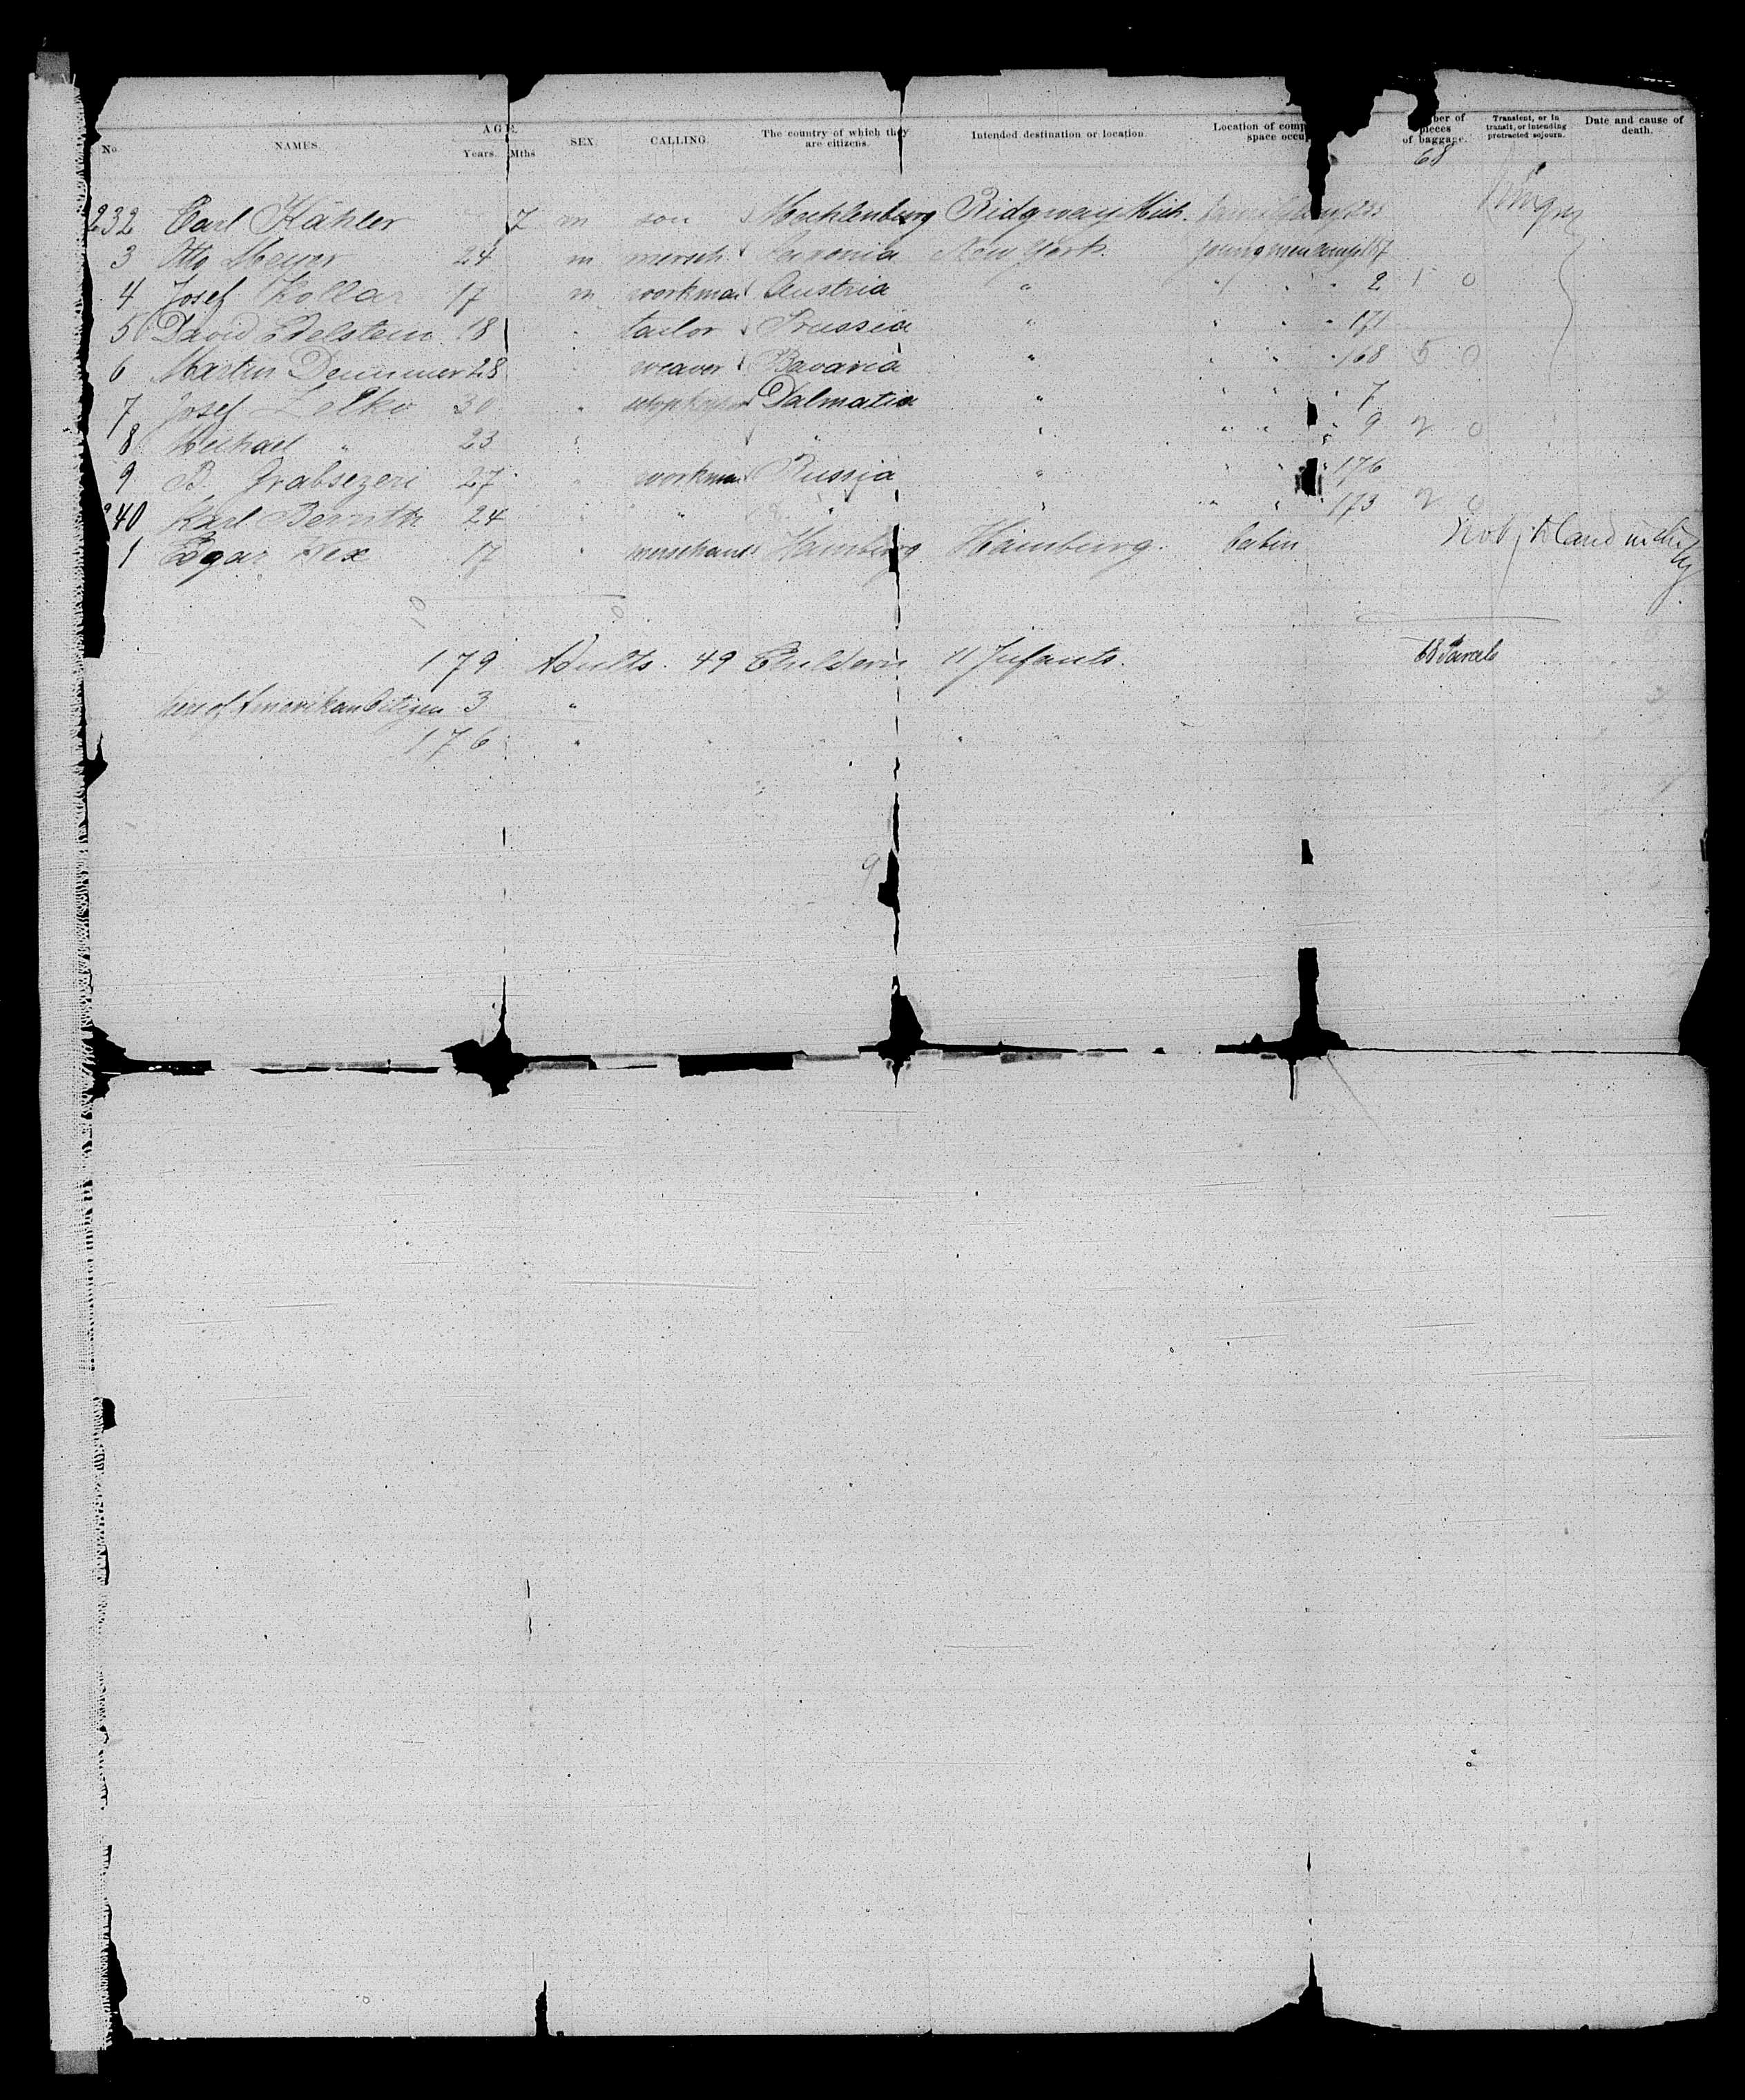 No. NAMES. AGE. Years. Mths SEX CALLING. The country of which they are citizens. Intended destination or location. Location of comp space occu ber of pieces of baggage. Transient, or in transit, or intending protracted sojourn. Date and cause of death.
68
232 Carl Kähler 7 m son Mecklenburg Ridgway Mich.
3 Otto Meyer 24 m mersch. New York
4 Josef Kollar 17 m workman Austria " " " " 2 1 0
5 David Edelstein 18 " tailor Prussia " " " " 171
6 Martin Demmer 28 " weaver Bavaria " " " " 168 5 0
7 Josef Lelko 30 " Dalmatia " " " " 7
8 Michael " 23 " " " " " " 9 2 0
9 B. Grabsezeri 27 " workman Russia " " " " 176
240 Karl Bernith 24 " " " " " " " 173 2 0
1 Edgar Wex 17 " merschant Hamburg Hamburg. Cabin
179 Adults. 49 Childern 11 Infants. 68 Parcels
here of Amerikan Citizen 3 "
176 " " " "